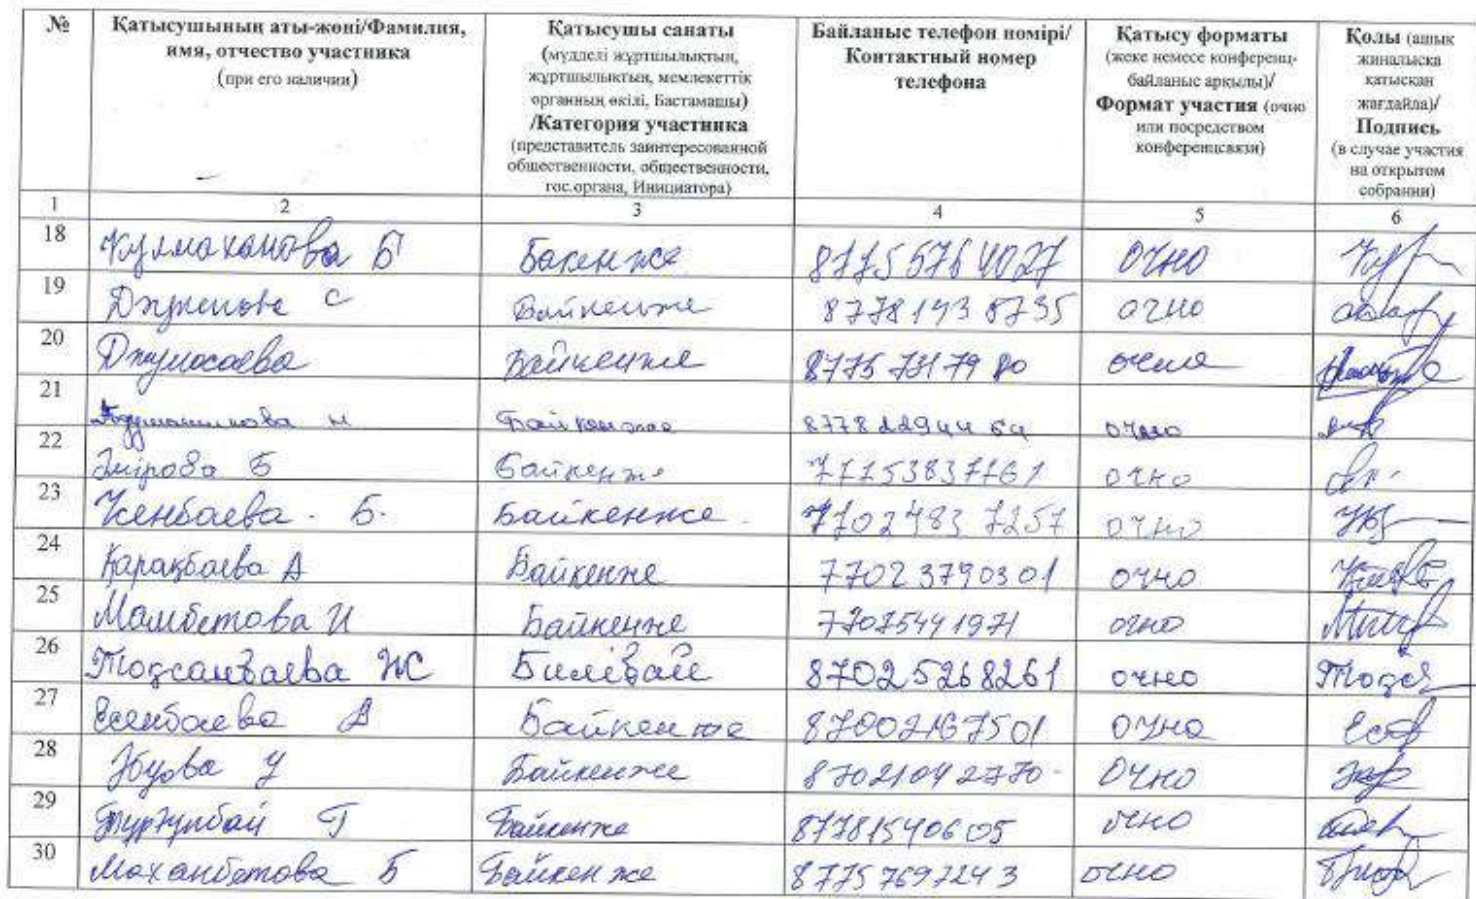 № Қатысушының аты-жөні/Фамилия, имя, отчество участника (при его наличии) Қатысушы санаты (мүдделі жұртшылықтың, жұртшылықтың, мемлекеттік органның өкілі, Бастамашы) /Категория участника (представитель заинтересованной общественности, общественности, гос.органа, Инициатора) Байланыс телефон номірі/ Контактный номер телефона Қатысу форматы (жеке немесе конференц-байланыс арқылы)/ Формат участия (очно или посредством конференцсвязи) Қолы (ашық жиналысқа қатысқан жағдайда)/ Подпись (в случае участия на открытом собрании)
1 2 3 4 5 6
18 Кулмаханова Б Бакенже 87755764027 очно
19 С Байкенже 87781438735 очно
20 Джумосаева Байкенже 87757317980
21 н Байконже 87782294464 очно
22 Әмірова Б Байкенже 77753837761 очно
23 Үсенбаева. Б. Байкенже. 77024837257 очно
24 Қарақбаева А Байкенже 77023790301 очно
25 Мамбетова И Байкенже 77075441971 очно
26 ЖС 87025268261 очно
27 Есенбаева А Байкенже 87002167501 очно
28 У Байкенже 87021042770- Очно
29 Г Байкенже 87781540605 очно
30 Маханбетова Б Байкенже 87757697243 очно